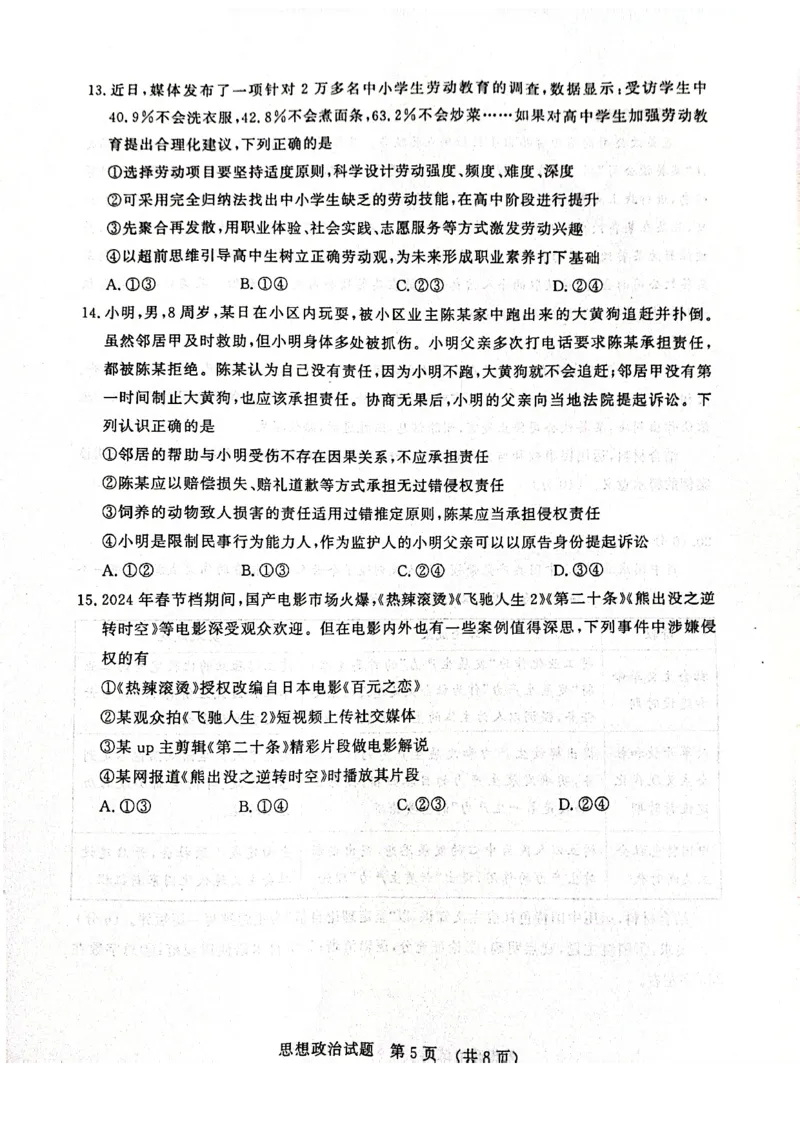 13. 近日,媒体发布了一项针对 2 万多名中小学生劳动教育的调查,数据显示:受访学生中
40.9%不会洗衣服,42.8%不会煮面条,63.2%不会炒菜……如果对高中学生加强劳动教
育提出合理化建议,下列正确的是
①选择劳动项目要坚持适度原则,科学设计劳动强度、频度、难度、深度
②可采用完全归纳法找出中小学生缺乏的劳动技能,在高中阶段进行提升
③先聚合再发散,用职业体验、社会实践、志愿服务等方式激发劳动兴趣
④以超前思维引导高中生树立正确劳动观,为未来形成职业素养打下基础
A. ①③ B. ①④ C. ②③ D. ②④
14. 小明,男,8 周岁,某日在小区内玩耍,被小区业主陈某家中跑出来的大黄狗追赶并扑倒。
虽然邻居甲及时救助,但小明身体多处被抓伤。小明父亲多次打电话要求陈某承担责任,
都被陈某拒绝。陈某认为自己没有责任,因为小明不跑,大黄狗就不会追赶;邻居甲没有第
一时间制止大黄狗,也应该承担责任。协商无果后,小明的父亲向当地法院提起诉讼。下
列认识正确的是
①邻居的帮助与小明受伤不存在因果关系,不应承担责任
②陈某应以赔偿损失、赔礼道歉等方式承担无过错侵权责任
③饲养的动物致人损害的责任适用过错推定原则,陈某应当承担侵权责任
④小明是限制民事行为能力人,作为监护人的小明父亲可以以原告身份提起诉讼
A. ①② B. ①③ C. ②④ D. ③④
15. 2024 年春节档期间,国产电影市场火爆,《热辣滚烫》《飞驰人生 2》《第二十条》《熊出没之逆
转时空》等电影深受观众欢迎。但在电影内外也有一些案例值得深思,下列事件中涉嫌侵
权的有
①《热辣滚烫》授权改编自日本电影《百元之恋》
②某观众拍《飞驰人生 2》短视频上传社交媒体
③某 up 主剪辑《第二十条》精彩片段做电影解说
④某网报道《熊出没之逆转时空》时播放其片段
A. ①③ B. ①④ C. ②③ D. ②④
思想政治试题 第 5 页 (共 8 页)